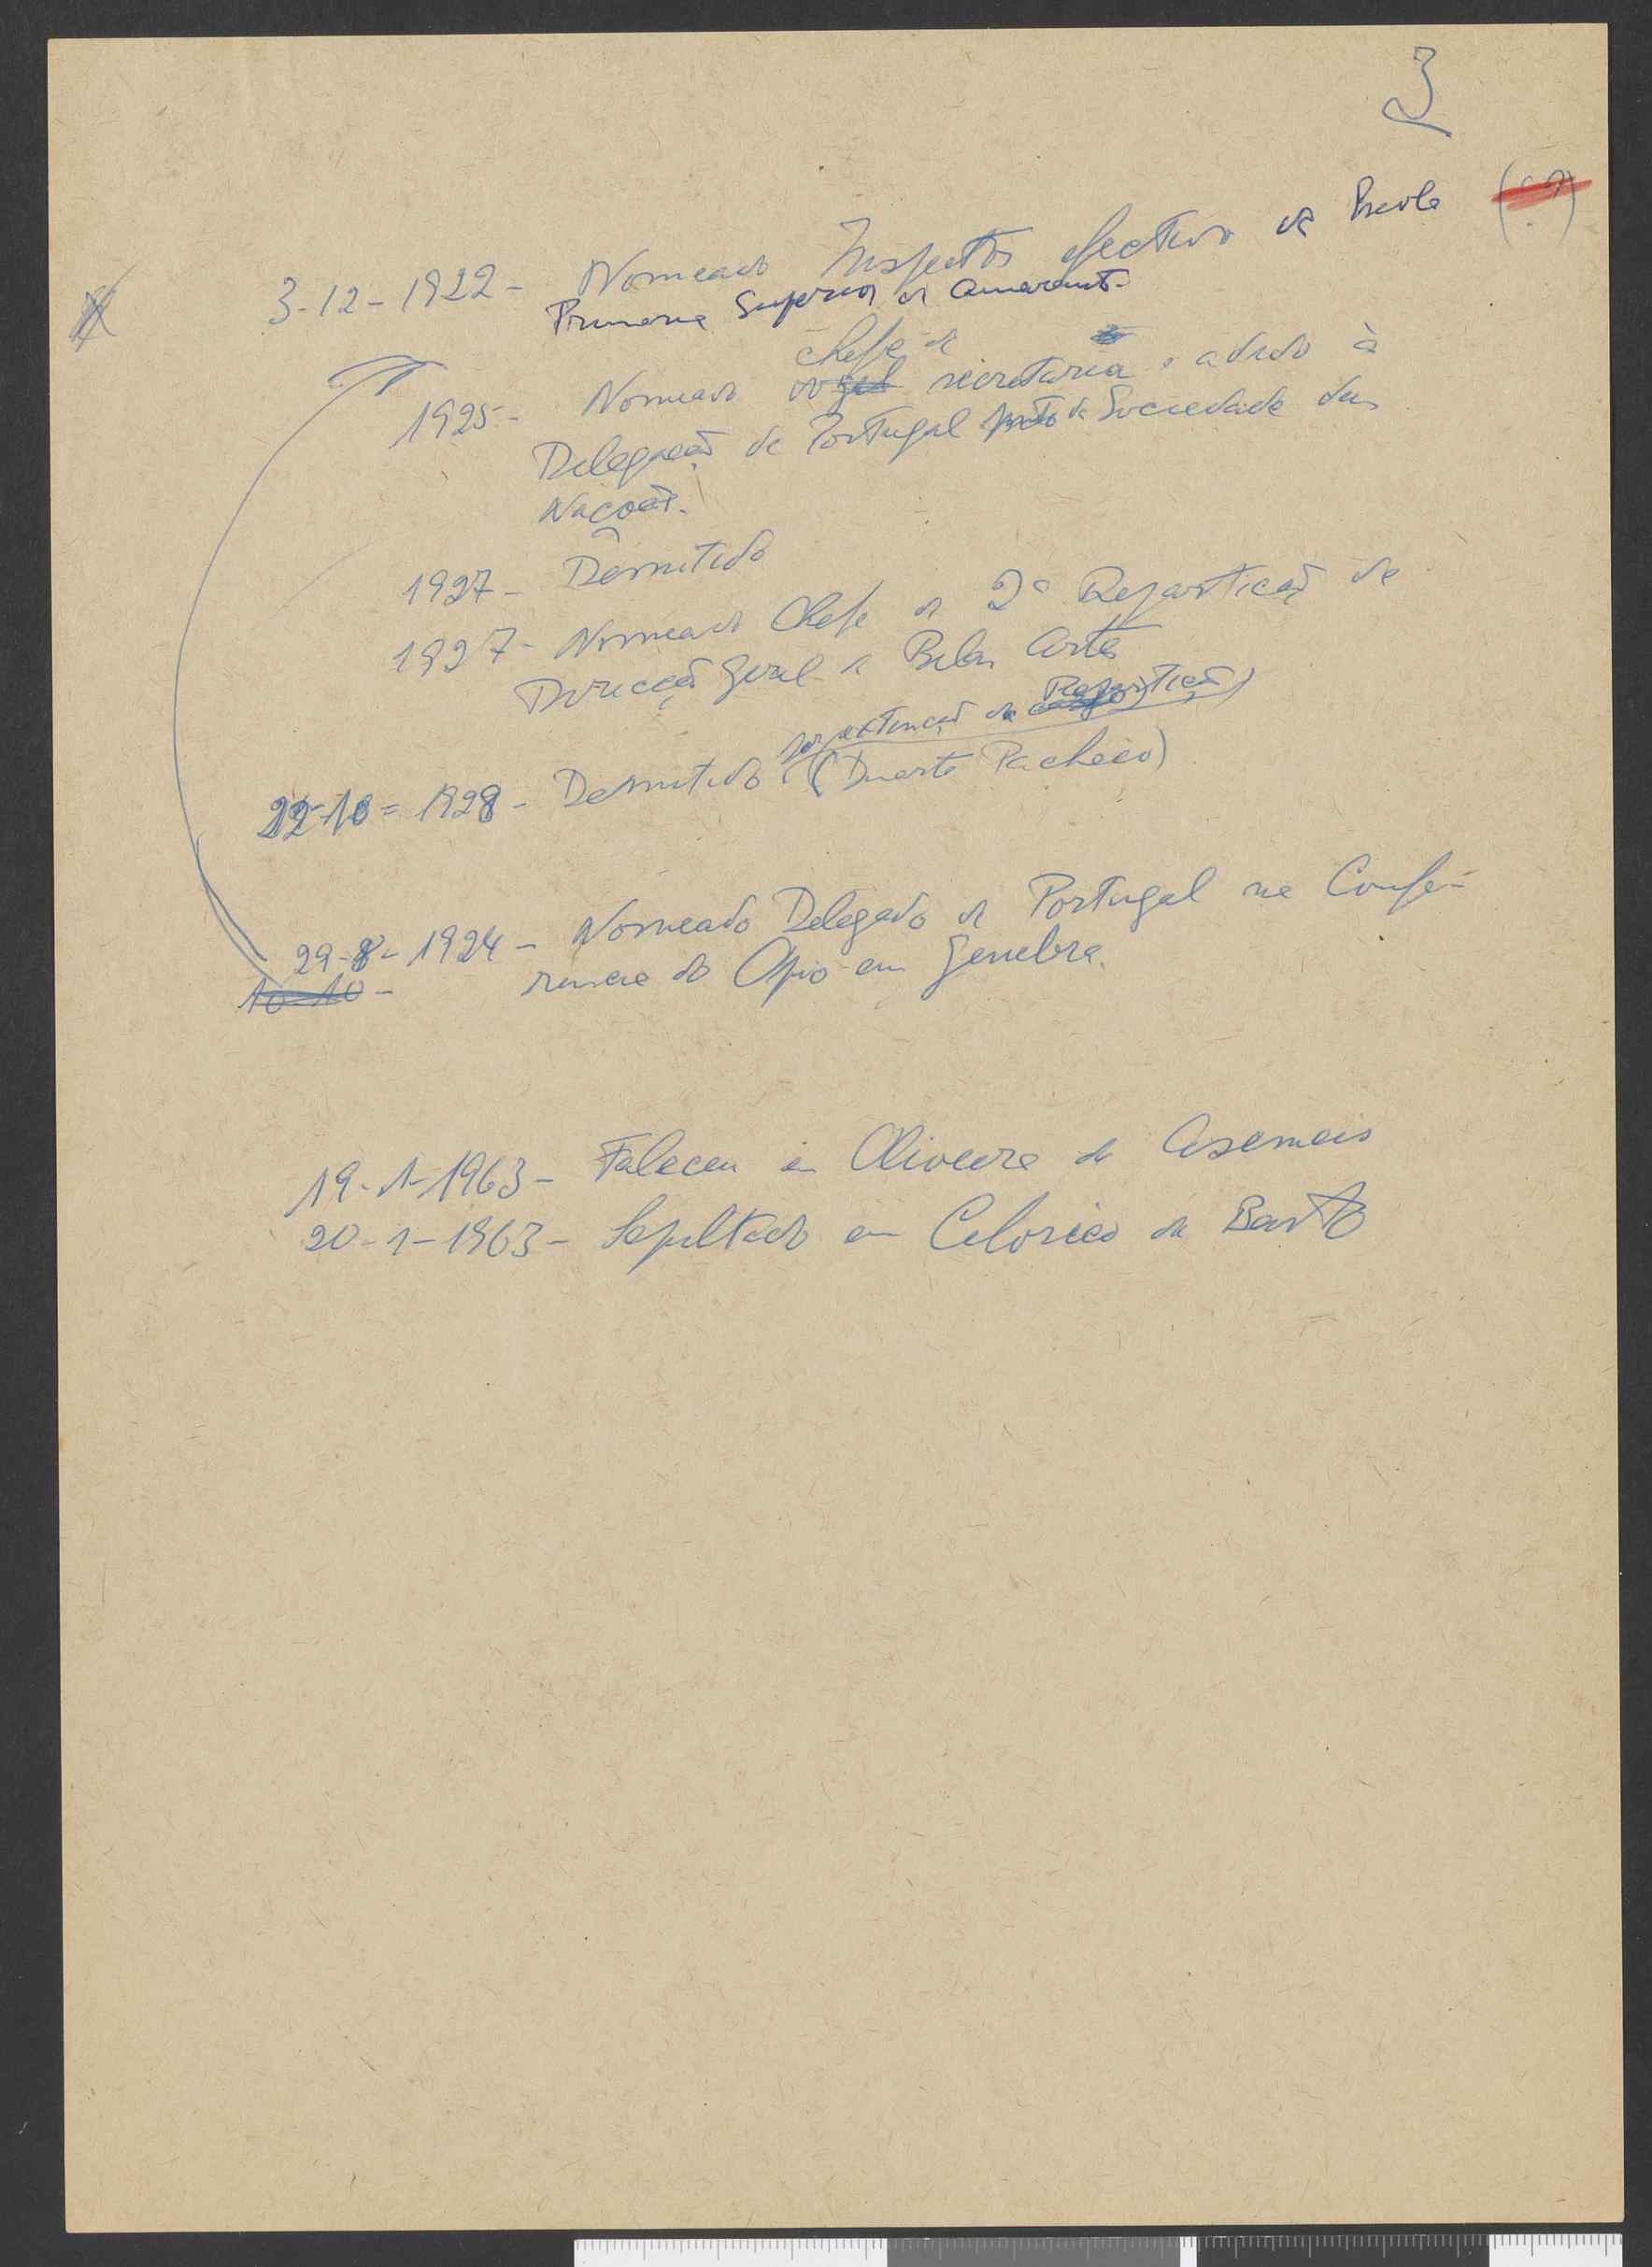 3
3-12-1922 - Nomeado Inspector efectivo da Escola
Primaria Superior de Amarante.
chefe de
1925 - Nomeado vogal secretaria e adido à
Delegação de Portugal junto da Sociedade das
Nações.
1927 - Demitido
1927 - Nomeado Chefe da 2ª Repartição da
Direcção Geral de Belas Artes
por extinção da Repartição)
22-10-1928 - Demitido (Duarte Pacheco)
29-8-1924 - Nomeado Delegado de Portugal na Confe-
10-10- rencia do Opio em Genebra.
19-1-1963 - Faleceu em Oliveira de Azemeis
20-1-1963 - Sepultado em Celorico de Basto